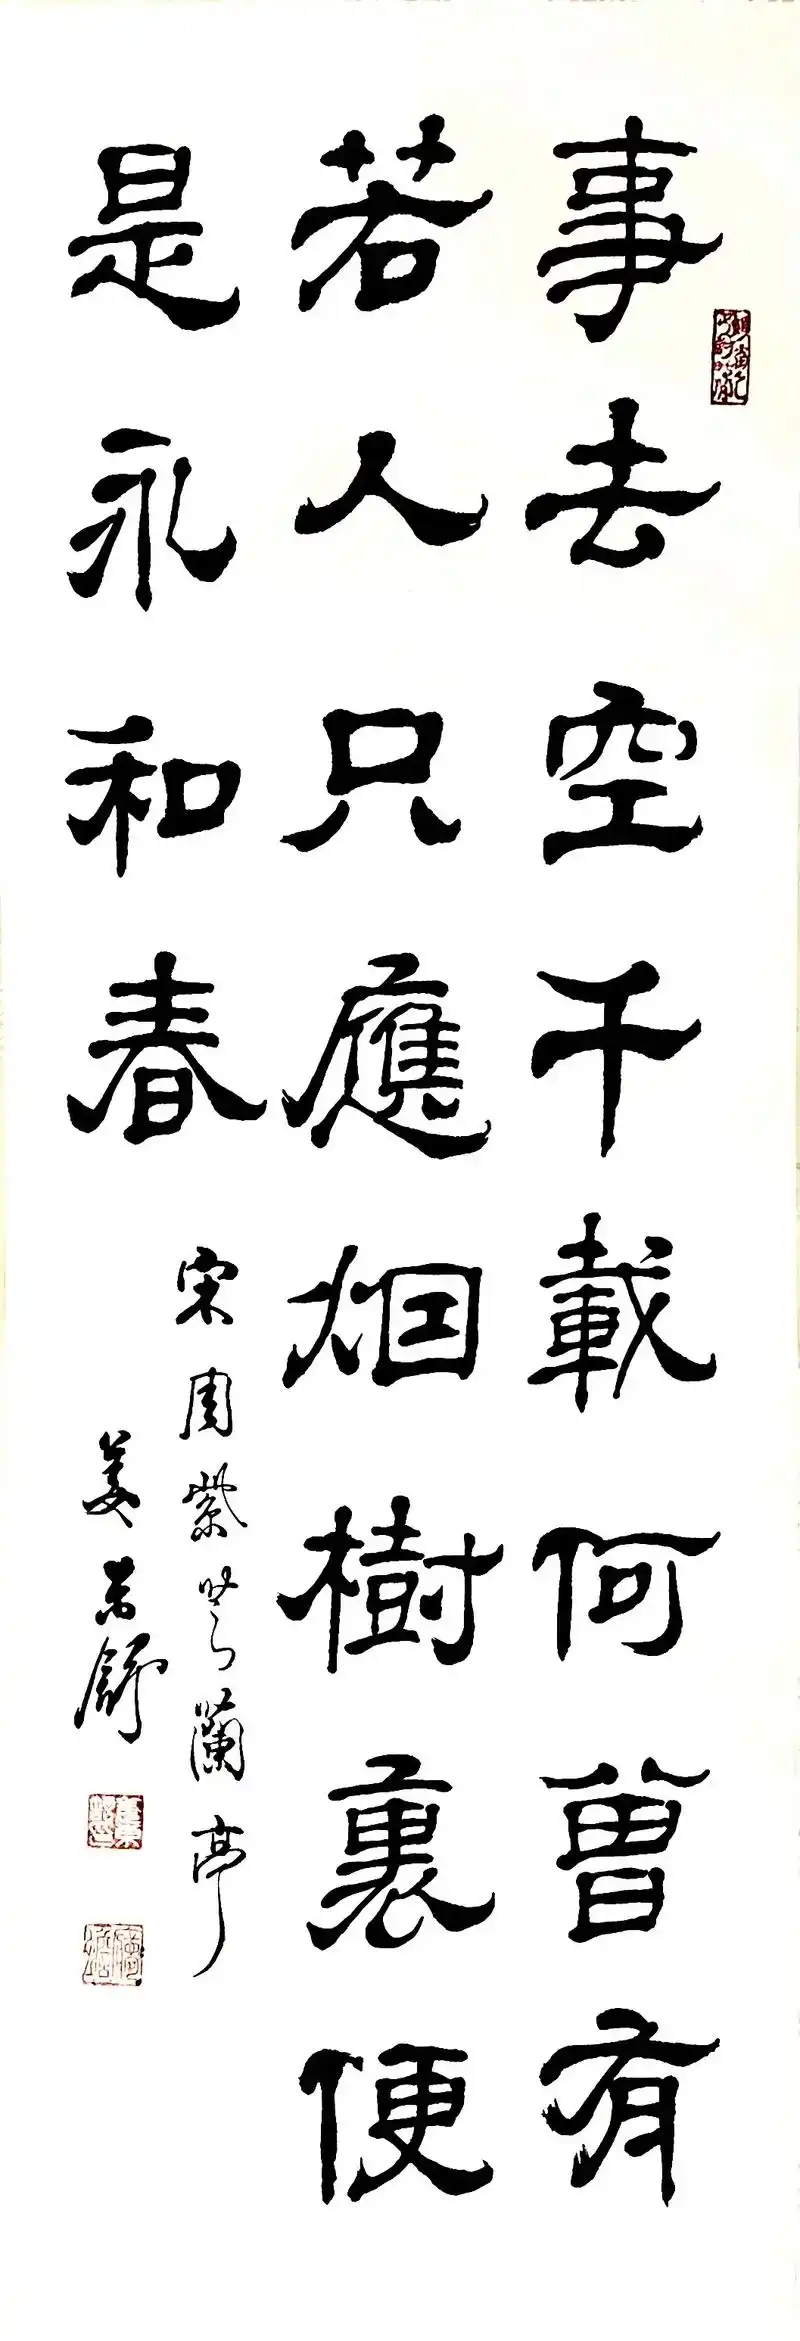 事去空千載何曾有
若人只應烟樹裏便
是永和春
宋周紫芝蘭亭
姜